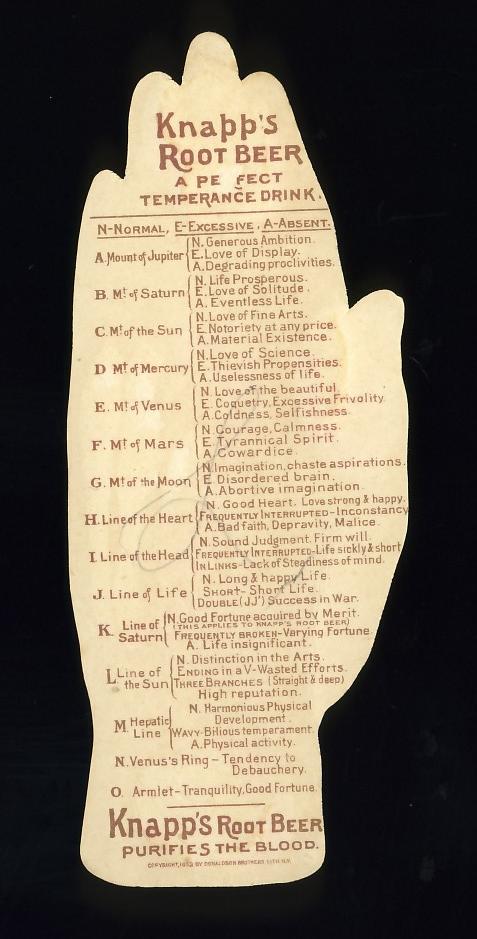 Knapp's
ROOT BEER
A PE FECT
TEMPERANCE DRINK.
N-NORMAL, E-EXCESSIVE, A-ABSENT.
A. Mount of Jupiter
N. Generous Ambition.
E. Love of Display.
A. Degrading proclivities.
B. Mt. of Saturn
N. Life Prosperous.
E. Love of Solitude.
A. Eventless Life.
C. Mt. of the Sun
N. Love of Fine Arts.
E. Notoriety at any price.
A. Material Existence.
D Mt. of Mercury
N. Love of Science.
E. Thievish Propensities.
A. Uselessness of life.
E. Mt. of Venus
N. Love of the beautiful.
E. Coquetry, Excessive Frivolity
A. Coldness, Selfishness.
F. Mt. of Mars
N. Courage, Calmness.
E. Tyrannical Spirit.
A. Cowardice.
G. Mt. of the Moon
N. Imagination, chaste aspirations.
E. Disordered brain.
A. Abortive imagination.
H. Line of the Heart
N. Good Heart. Love strong & happy.
FREQUENTLY INTERRUPTED-Inconstancy
A. Bad faith, Depravity, Malice.
I. Line of the Head
N. Sound Judgment. Firm will.
FREQUENTLY INTERRUPTED-Life sickly & short
IN LINKS-Lack of Steadiness of mind.
J. Line of Life
N. Long & happy Life.
SHORT- Short Life.
DOUBLE (JJ') Success in War.
K. Line of Saturn
N. Good Fortune acquired by Merit.
(THIS APPLIES TO KNAPP'S ROOT BEER)
FREQUENTLY BROKEN-Varying Fortune.
A. Life insignificant.
L. Line of the Sun
N. Distinction in the Arts.
ENDING in a V-Wasted Efforts.
THREE BRANCHES (Straight & deep)
High reputation.
M. Hepatic Line
N. Harmonious Physical
Development.
WAVY-Bilious temperament.
A. Physical activity.
N. Venus's Ring - Tendency to
Debauchery.
O. Armlet-Tranquility, Good Fortune.
Knapp's ROOT BEER
PURIFIES THE BLOOD.
COPYRIGHT, BY DONALDSON BROTHERS, N.Y.